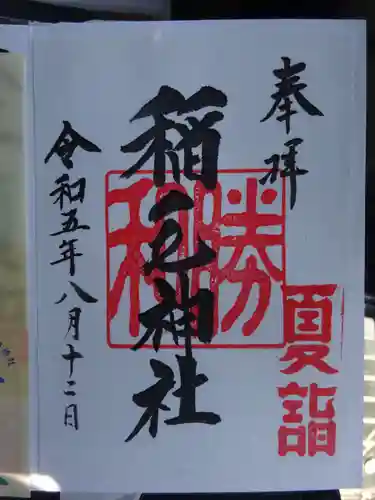 奉拝
夏詣
稲毛神社
令和五年八月十二日